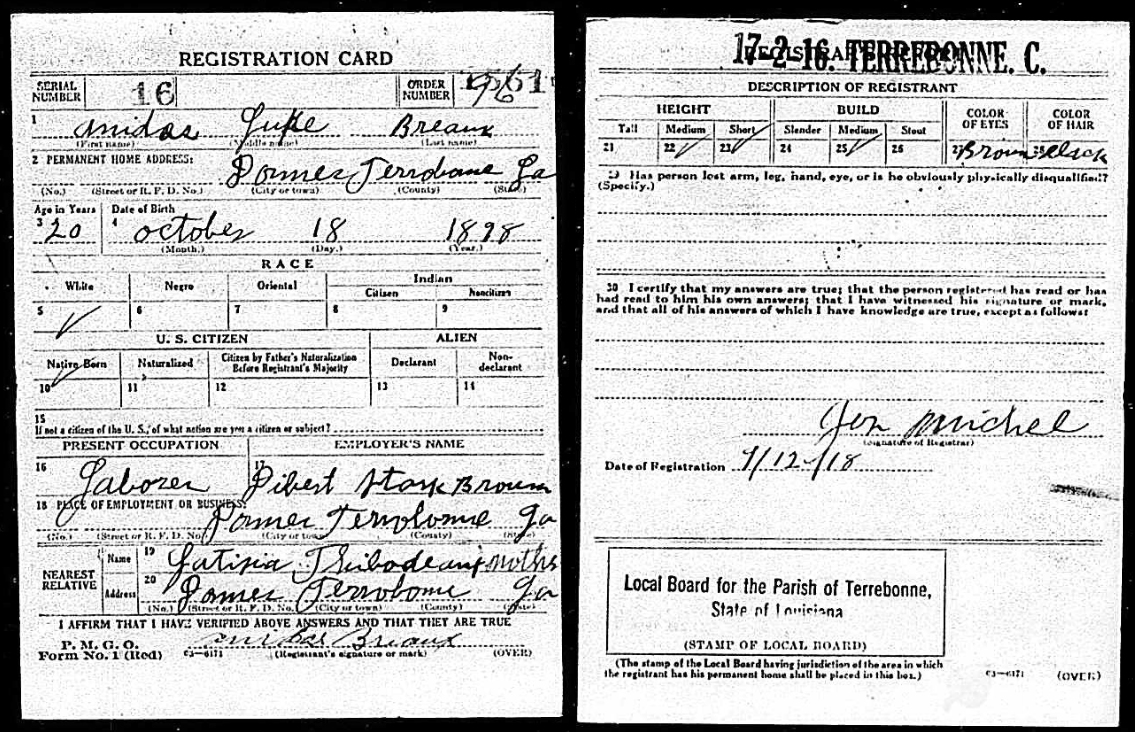 REGISTRATION CARD
SERIAL NUMBER 16 ORDER NUMBER
1 Anidas Luke Breaux
(First name) (Middle name) (Last name)
2 PERMANENT HOME ADDRESS:
Terrobone La
(No.) (Street or R. F. D. No.) (City or town) (County) (State)
Age in Years Date of Birth
3 20 4 October 18 1898
(Month.) (Day.) (Year.)
RACE
White Negro Oriental Indian
Citizen Noncitizen
5 ✓ 6 7 8 9
U. S. CITIZEN ALIEN
Native Born Naturalized Citizen by Father's Naturalization Before Registrant's Majority Declarant Non-declarant
10 ✓ 11 12 13 14
15
If not a citizen of the U. S., of what nation are you a citizen or subject?
PRESENT OCCUPATION EMPLOYER'S NAME
16 Laborer 17 Dibert Stark Brown
18 PLACE OF EMPLOYMENT OR BUSINESS:
Terrobonne La
(No.) (Street or R. F. D. No.) (City or town) (County) (State)
NEAREST RELATIVE Name 19 Thibodeaux mother
Address 20 La
(No.) (Street or R. F. D. No.) (City or town) (County) (State)
I AFFIRM THAT I HAVE VERIFIED ABOVE ANSWERS AND THAT THEY ARE TRUE
P. M. G. O.
Form No. 1 (Red) 03—6171 Anidas Breaux (Registrant's signature or mark) (OVER)
17-2-16. TERREBONNE. C.
DESCRIPTION OF REGISTRANT
HEIGHT BUILD COLOR OF EYES COLOR OF HAIR
Tall Medium Short Slender Medium Stout
21 22 ✓ 23 ✓ 24 25 ✓ 26 27 Brown 28 Black
29 Has person lost arm, leg, hand, eye, or is he obviously physically disqualified?
(Specify.)
30 I certify that my answers are true; that the person registered has read or has
had read to him his own answers; that I have witnessed his signature or mark,
and that all of his answers of which I have knowledge are true, except as follows:
Michel
(Signature of Registrar)
Date of Registration 9/12-/18
Local Board for the Parish of Terrebonne,
State of Louisiana
(STAMP OF LOCAL BOARD)
(The stamp of the Local Board having jurisdiction of the area in which
the registrant has his permanent home shall be placed in this box.)
03—6171 (OVER)